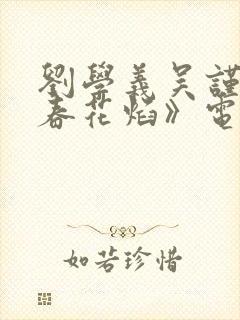 劉學義吳謹
春花焰》電
如若珍惜